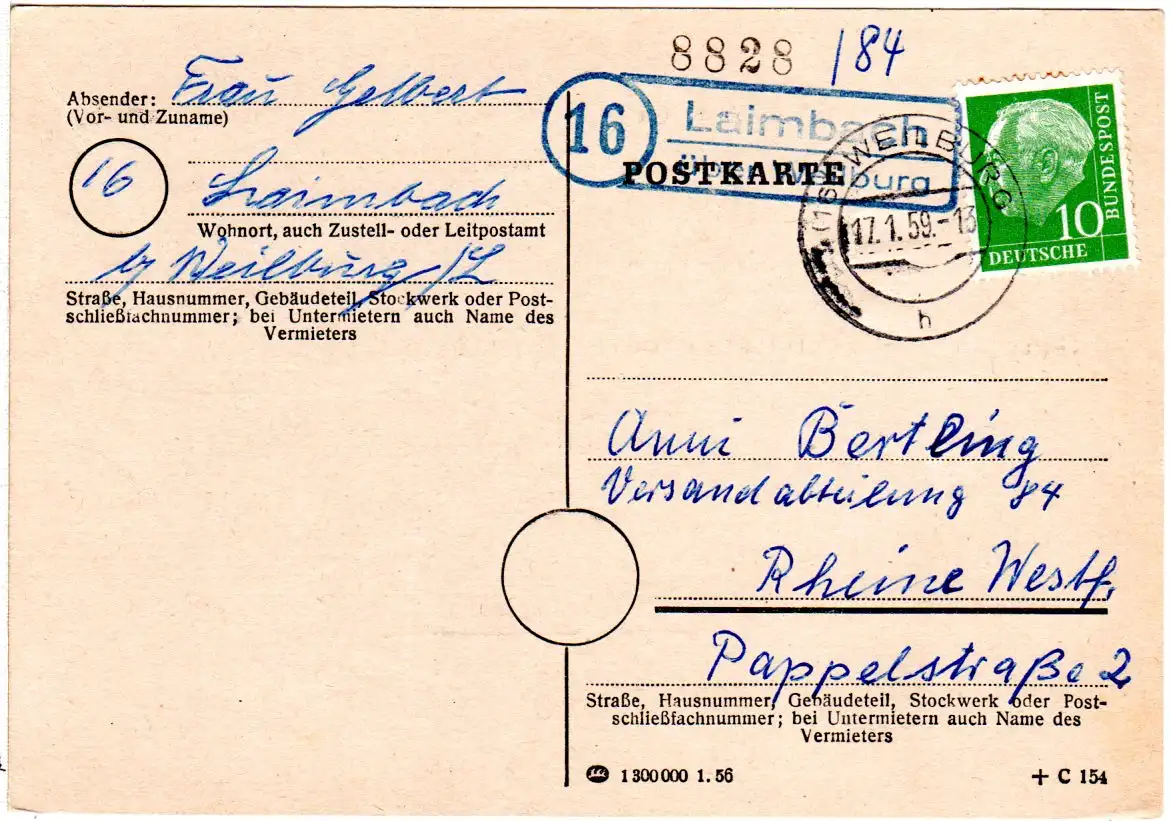 8828 /84
Absender: Frau Gelbert
(Vor- und Zuname)
16
Laimbach
Wohnort, auch Zustell- oder Leitpostamt
b/ Weilburg/L
Straße, Hausnummer, Gebäudeteil, Stockwerk oder Post-
schließfachnummer; bei Untermietern auch Name des
Vermieters
16 Laimbach
über Weilburg
POSTKARTE
(16) WEILBURG
17.1.59.-13
h
10
DEUTSCHE
BUNDESPOST
Anni Bertling
Versandabteilung 84
Rheine Westf.
Pappelstraße 2
Straße, Hausnummer, Gebäudeteil, Stockwerk oder Post-
schließfachnummer; bei Untermietern auch Name des
Vermieters
1 300 000 1. 56
+ C 154